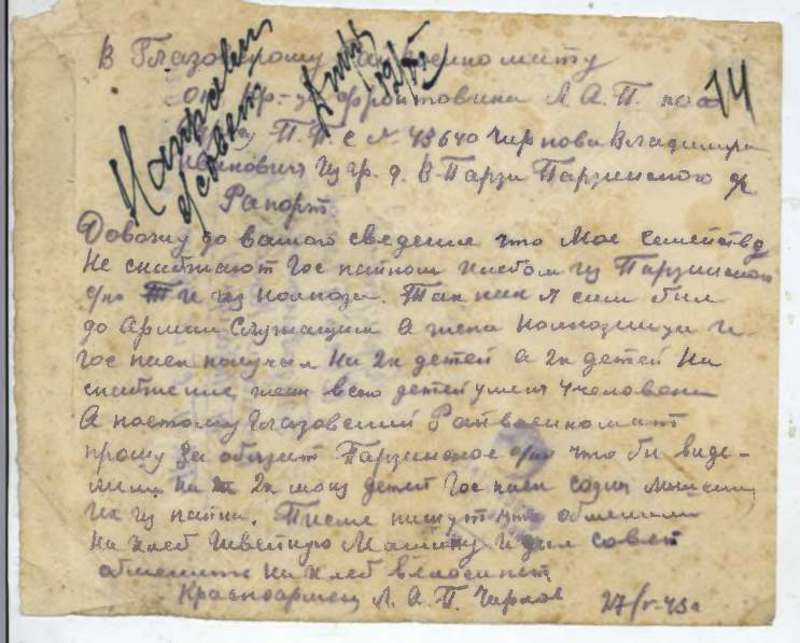 В Глазовскому военкомату
14
от кр-ца фронтовика Л А.П. поля
П.П.С № 48640 Чиркова Владимира
Ивановича из гр. д. В-Парзи Парзинского
Направить
ответить
Рапорт.
Довожу до вашего сведения что Мое семейство
Не снабжают Гос пайком хлебом из Парзинского
с/по и из колхоза. Так как я сам был
до Армии Служащим А жена колхозница и
Гос паек получал На 2х детей а 2х детей На
снабжение всего детей у меня 4 человека
А поэтому Глазовский Райвоенкомат
прошу За обязат Парзинское с/по что бы виде-
лили на 2х моих детей Гос паек
Их из пайка. Писмо пишут что обменяли
На Хлеб Швейную Машину И дал совет
обменить На хлеб веласипет
Красноармеец Л. А. П. Чирков 27/V-43г